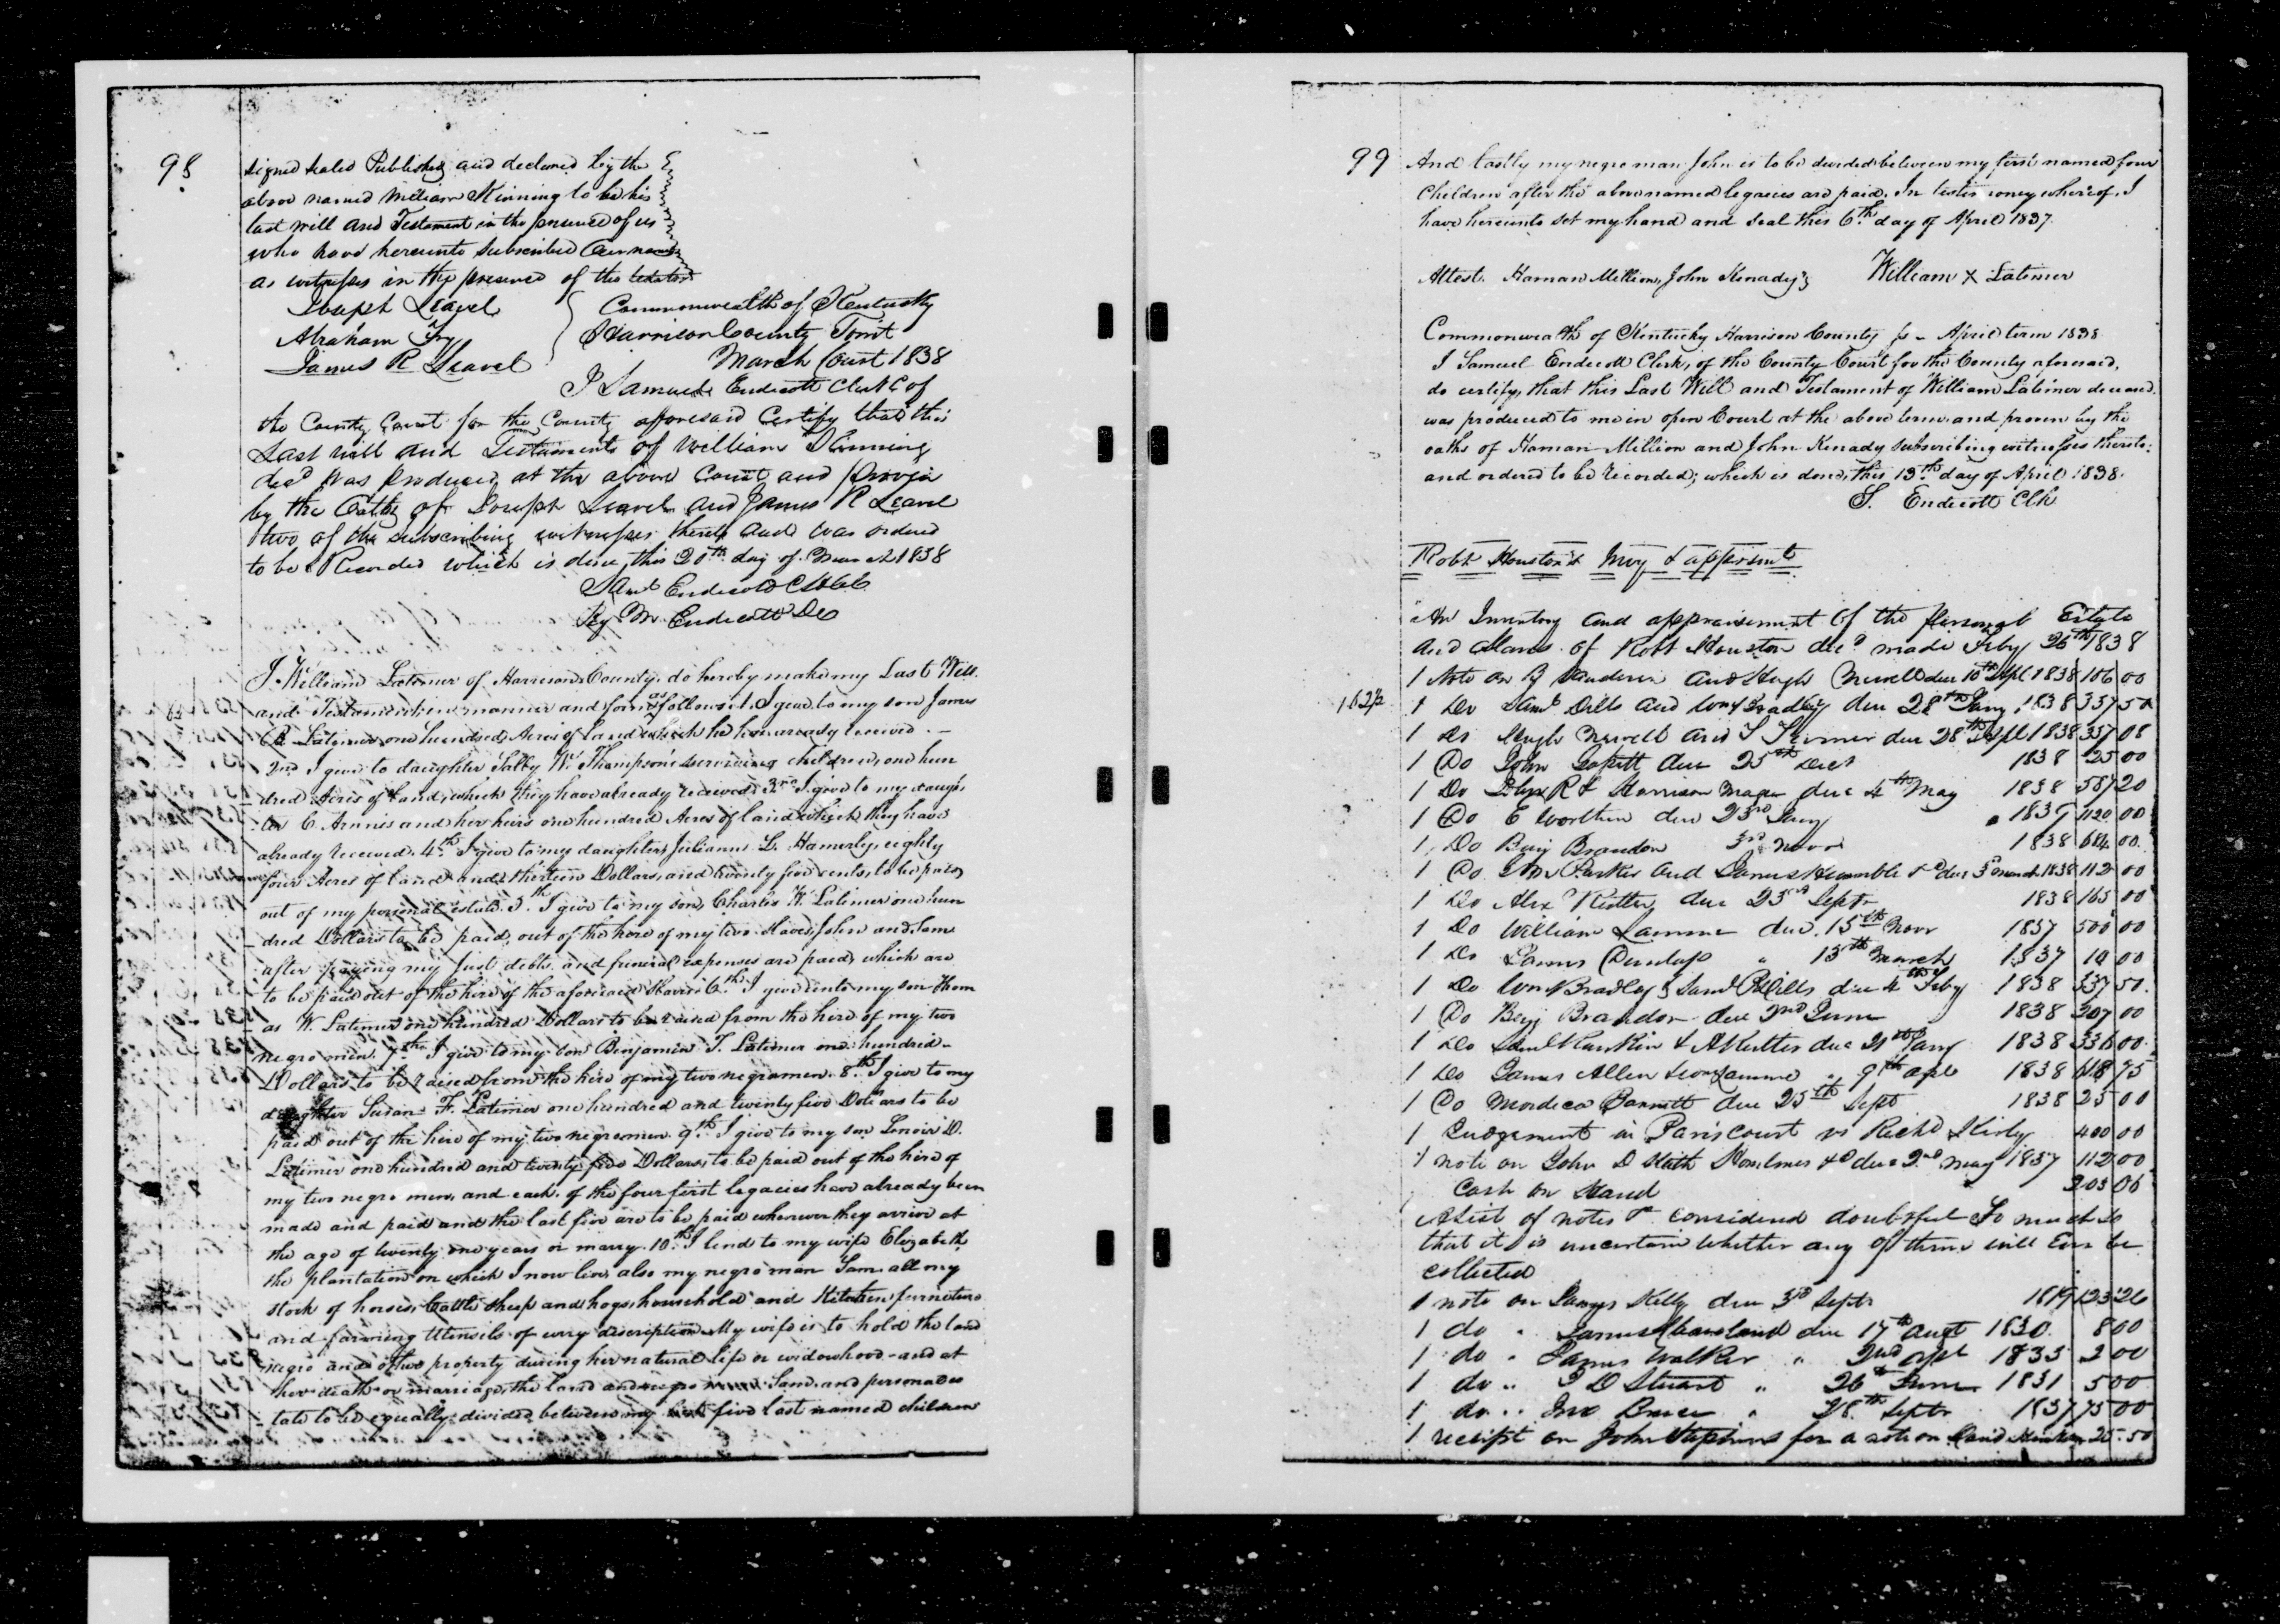 98
signed sealed Published and declared by the
above named William Kinning to be his
last will and Testament in the presence of us
who have hereunto subscribed Our names
as witnesses in the presence of the testator
Joseph Leavel
Abraham Fry
James R Leavel
Commonwealth of Kentucky
Harrison County Towit
March Court 1838
I Samuel Endicott Clerk of
the County Court for the County afforesaid Certify that this
Last will and Testament of William Kinning
decd was produced at the above Court and proven
by the Oaths of Joseph Leavel and James R Leavel
two of the subscribing witnesses thereto and was ordered
to be Recorded which is done, this 20th day of March 1838
Saml Endicott C H C C
By M. Endicott DC
I William Latimer of Harrison County, do hereby make my Last Will
and Testament in manner and form as follows, I give to my son James
R Latimer one hundred Acres of land which he has already received. -
2nd I give to daughter Sally W. Thompson's surviving children, one hun
dred Acres of land, which they have already received. 3rd I give to my daugh
ter C. Ammis and her heirs one hundred Acres of land which they have
already received. 4th I give to my daughter Julianna L. Hamerly, eighty
four Acres of land and thirteen Dollars, and twenty five cents, to be paid
out of my personal estate. 5th I give to my son, Charles W. Latimer one hun
dred Dollars to be paid out of the hire of my two slaves John and Sam
after paying my just debts and funeral expenses are paid, which are
to be paid out of the hire of the aforesaid slaves 6th I give unto my son Thom
as W. Latimer one hundred Dollars to be raised from the hire of my two
negro men. 7th I give to my son Benjamin T. Latimer one hundred
Dollars to be raised from the hire of my two negro men. 8th I give to my
daughter Susan F. Latimer one hundred and twenty five Dollars to be
paid out of the hire of my two negro men. 9th I give to my son Lenoir D.
Latimer one hundred and twenty five Dollars, to be paid out of the hire of
my two negro men, and each of the four first legacies have already been
made and paid and the last five are to be paid whenever they arrive at
the age of twenty one years or marry. 10th I lend to my wife Elizabeth
the plantation on which I now live, also my negro man Sam, all my
stock of horses, Cattle sheep and hogs, household and kitchen furniture
and farming Utensils of every description. My wife is to hold the land
negro and other property during her natural life or widowhood - and at
her death or marriage, the land and negro Sam and personal es
tate to be equally divided between my five last named children
99
And lastly my negro man John is to be divided between my first named four
Children after the above named legacies are paid. In testimoney whereof, I
have hereunto set my hand and seal this 6th day of April 1837.
Attest. Haman Million, John Kenady
William X Latimer
Commonwealth of Kentucky Harrison County ss - April term 1838
I Samuel Endicott Clerk, of the County Court for the County aforesaid,
do certify, that this Last Will and Testament of William Latimer deceased.
was produced to me in open Court at the above term and proven by the
oaths of Haman Million and John Kenady subscribing witnesses thereto:
and ordered to be recorded; which is done, this 13th day of April 1838.
S. Endicott Clk
Robt Houston's Invy & apprsmt
An Inventory and appraisement of the personal Estate
and slaves of Robt Houston decd made Feby 26th 1838
1 Note on B Sanderson and Hugh Newell due 10th Sept 1838 106 00
1 62½
1 Do Saml Dills and Wm Bradley due 28th Jany 1838 337 50
1 Do Hugh Newell and due 28th Sept 1838 357 08
1 Do John due 25th Decr 1838 25 00
1 Do R & Harrison Magee due 4th May 1838 587 20
1 Do E Worthen due 23rd Jany 1839 1120 00
1 Do Benj Brandon 3rd Novr 1838 684 00
1 Do Jno Parker and James Humble &c due 5 March 1838 112 00
1 Do Alex Rutter due 23rd Septr 1838 165 00
1 Do William Lamme due 15th Novr 1837 500 00
1 Do James Dunlap " 13th March 1837 10 00
1 Do Wm Bradley & Saml Dills due 4th Feby 1838 337 50
1 Do Benj Brandon due 2nd June 1838 207 00
1 Do Saml Rankin & A Rutter due 21st Jany 1838 336 00
1 Do James Allen & Wm Lamme " 9th apl 1838 618 75
1 Do Mordica Barnett due 25th Sept 1838 25 00
1 Judgement in Paris Court vs Richd Kirly 400 00
1 note on John D &c due 2nd may 1837 112 00
Cash on Hand 203 06
A List of notes &c considered doubtful so much so
that it is uncertain whether any of them will Ever be
collected
1 note on James Kelly due 3rd Septr 1819 123 26
1 do " James due 17th augt 1830 8 00
1 do " James Walker " 2nd apl 1833 2 00
1 do " D Stuart " 26th June 1831 5 00
1 do " Jno Bruce " 28th Septr 1837 75 00
1 receipt on John Stephens for a note on 25.50